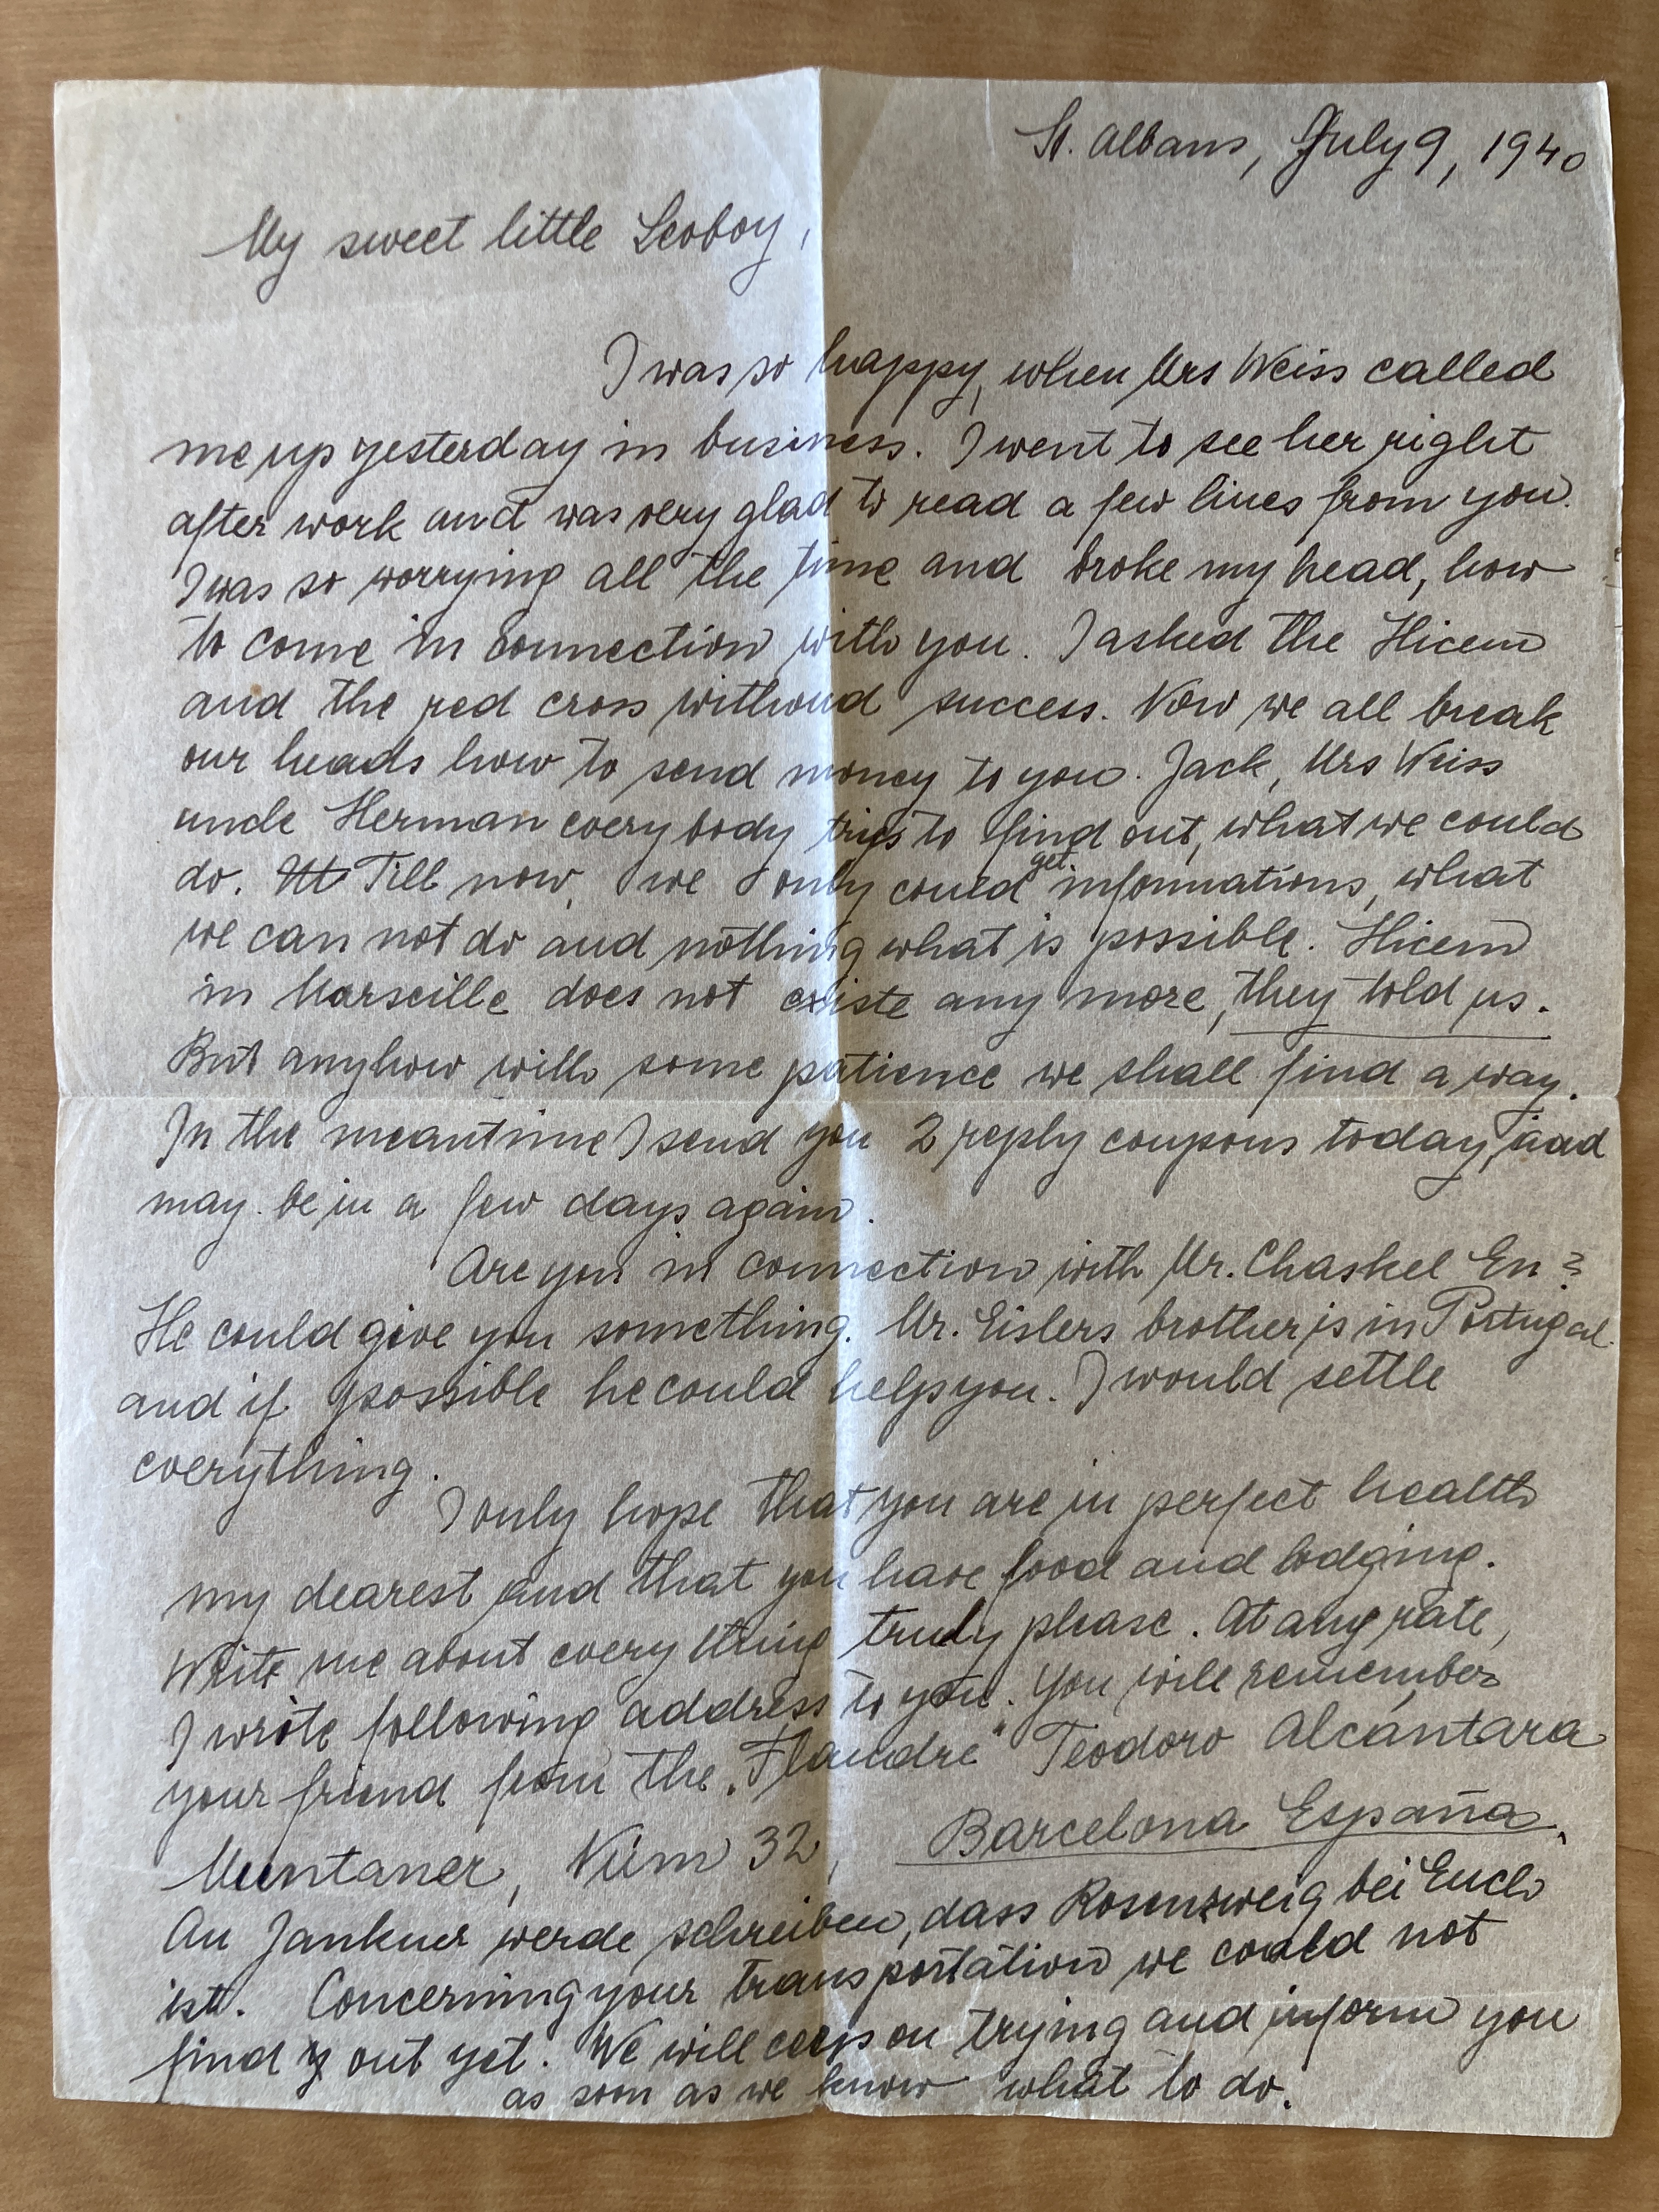 St. Albans, July 9, 1940
My sweet little Leoboy,
I was so happy, when Mrs Weiss called
me up yesterday in business. I went to see her right
after work and was very glad to read a few lines from you.
I was so worrying all the time and broke my head, how
to come in connection with you. I asked the Hicem
and the red cross withoud success. Now we all break
our heads how to send money to you. Jack, Mrs Weiss
uncle Herman everybody trys to find out, what we could
do. Till now, we only could get informations, what
we can not do and nothing what is possible. Hicem
in Marseille does not existe any more, they told us.
But anyhow with some patience we shall find a way.
In the meantime I send you 2 reply coupons today, aad
may be in a few days again.
Are you in connection with Mr. Chaskel En?
He could give you something. Mr. Eislers brother is in Portugal
and if possible he could help you. I would settle
everything.
I only hope that you are in perfect health
my dearest and that you have food and lodging.
Write me about everything truly please. At any rate,
I wrote following address to you. You will remember
your friend from the „Flandre" Teodoro Alcántara
Muntaner, Núm 32, Barcelona España.
An Jankner werde schreiben, dass Rosenzweig bei Euch
ist. Concerning your transportation we could not
find out yet. We will ceep on trying and inform you
as soon as we know what to do.